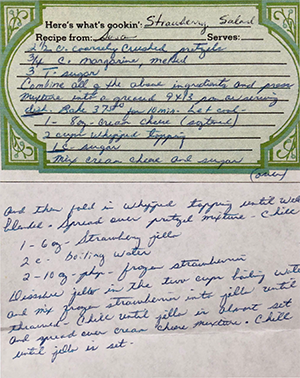 Here's what's cookin': Strawberry Salad
Recipe from: Susan Serves:
2 ½ c. coarsely crushed pretzels
3/4 c. margarine, melted
3 T. sugar
Combine all of the above ingredients and press
mixture into a greased 9x13 pan or serving
dish. Bake 375° for 10 min. Let cool
1 - 8 oz. cream cheese (softened)
2 cups whipped topping
1 c. sugar
Mix cream cheese and sugar
(over)
and then fold in whipped topping until well
blended. Spread over pretzel mixture. Chill
1 - 6 oz - Strawberry jello
2 c - boiling water
2 - 10 oz. pkgs - frozen strawberries
Dissolve jello in the two cups boiling water
and mix frozen strawberries into jello until
thawed. Chill until jello is almost set
and spread over cream cheese mixture. Chill
until jello is set.